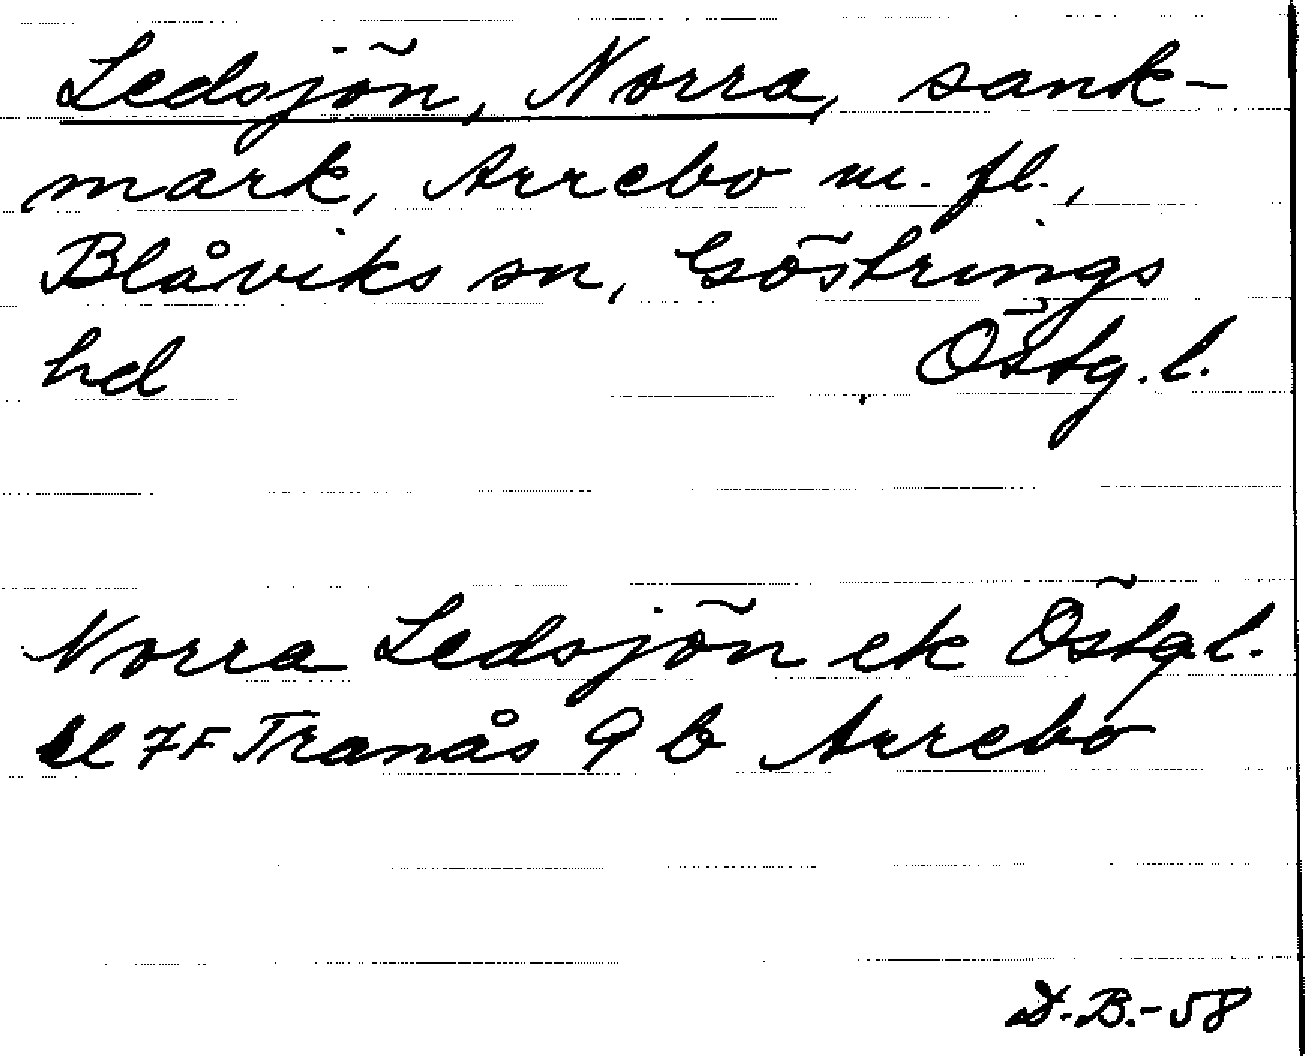 Ledsjön, Norra, sank-
mark, Arrebo m. fl.,
Blåviks sn, Göstrings
hd Östg. l.
Norra Ledsjön ek Östg. l.
bl 7F Tranås 9 b Arrebo
D.B.-58